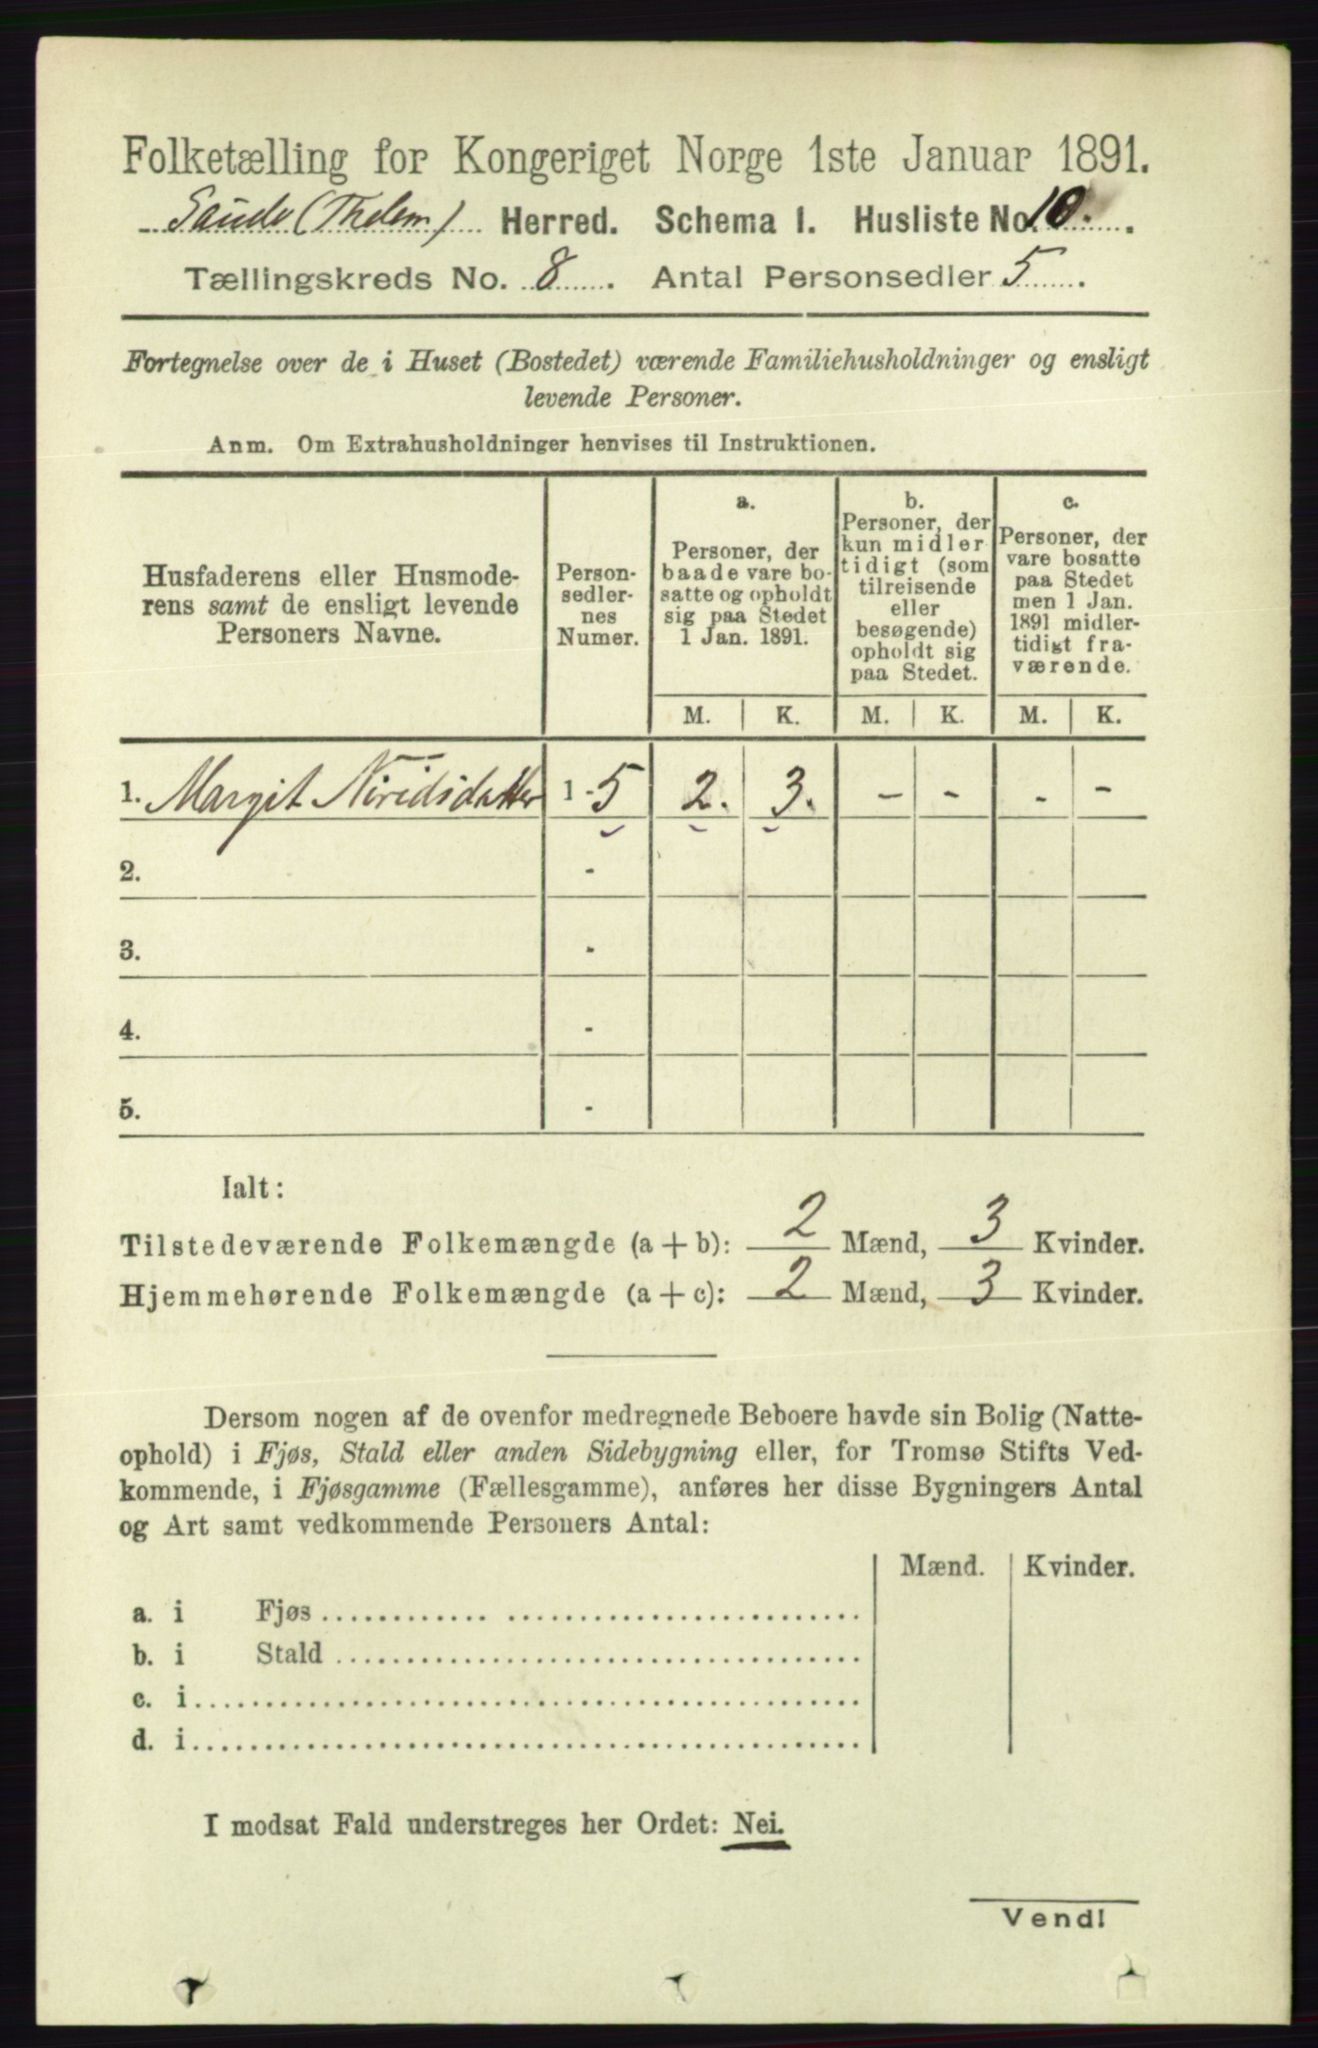 Folketælling for Kongeriget Norge 1ste Januar 1891.
Saude (Thelem) Herred. Schema I. Husliste No. 10.
Tællingskreds No. 8. Antal Personsedler 5.
Fortegnelse over de i Huset (Bostedet) værende Familiehusholdninger og ensligt
levende Personer.
Anm. Om Extrahusholdninger henvises til Instruktionen.
Husfaderens eller Husmode-
rens samt de ensligt levende
Personers Navne.
Person-
sedler-
nes
Numer.
a.
Personer, der
baade vare bo-
satte og opholdt
sig paa Stedet
1 Jan. 1891.
b.
Personer, der
kun midler-
tidigt (som
tilreisende
eller
besøgende)
opholdt sig
paa Stedet.
c.
Personer, der
vare bosatte
paa Stedet
men 1 Jan.
1891 midler-
tidigt fra-
værende.
M. K. M. K. M. K.
1. Margit Niridsdatter 1 - 5 2. 3. - - - -
2. -
3. -
4. -
5. -
Ialt:
Tilstedeværende Folkemængde (a + b): 2 Mænd, 3 Kvinder.
Hjemmehørende Folkemængde (a + c): 2 Mænd, 3 Kvinder.
Dersom nogen af de ovenfor medregnede Beboere havde sin Bolig (Natte-
ophold) i Fjøs, Stald eller anden Sidebygning eller, for Tromsø Stifts Ved-
kommende, i Fjøsgamme (Fællesgamme), anføres her disse Bygningers Antal
og Art samt vedkommende Personers Antal:
Mænd. Kvinder.
a. i Fjøs
b. i Stald
c. i
d. i
I modsat Fald understreges her Ordet: Nei.
Vend!